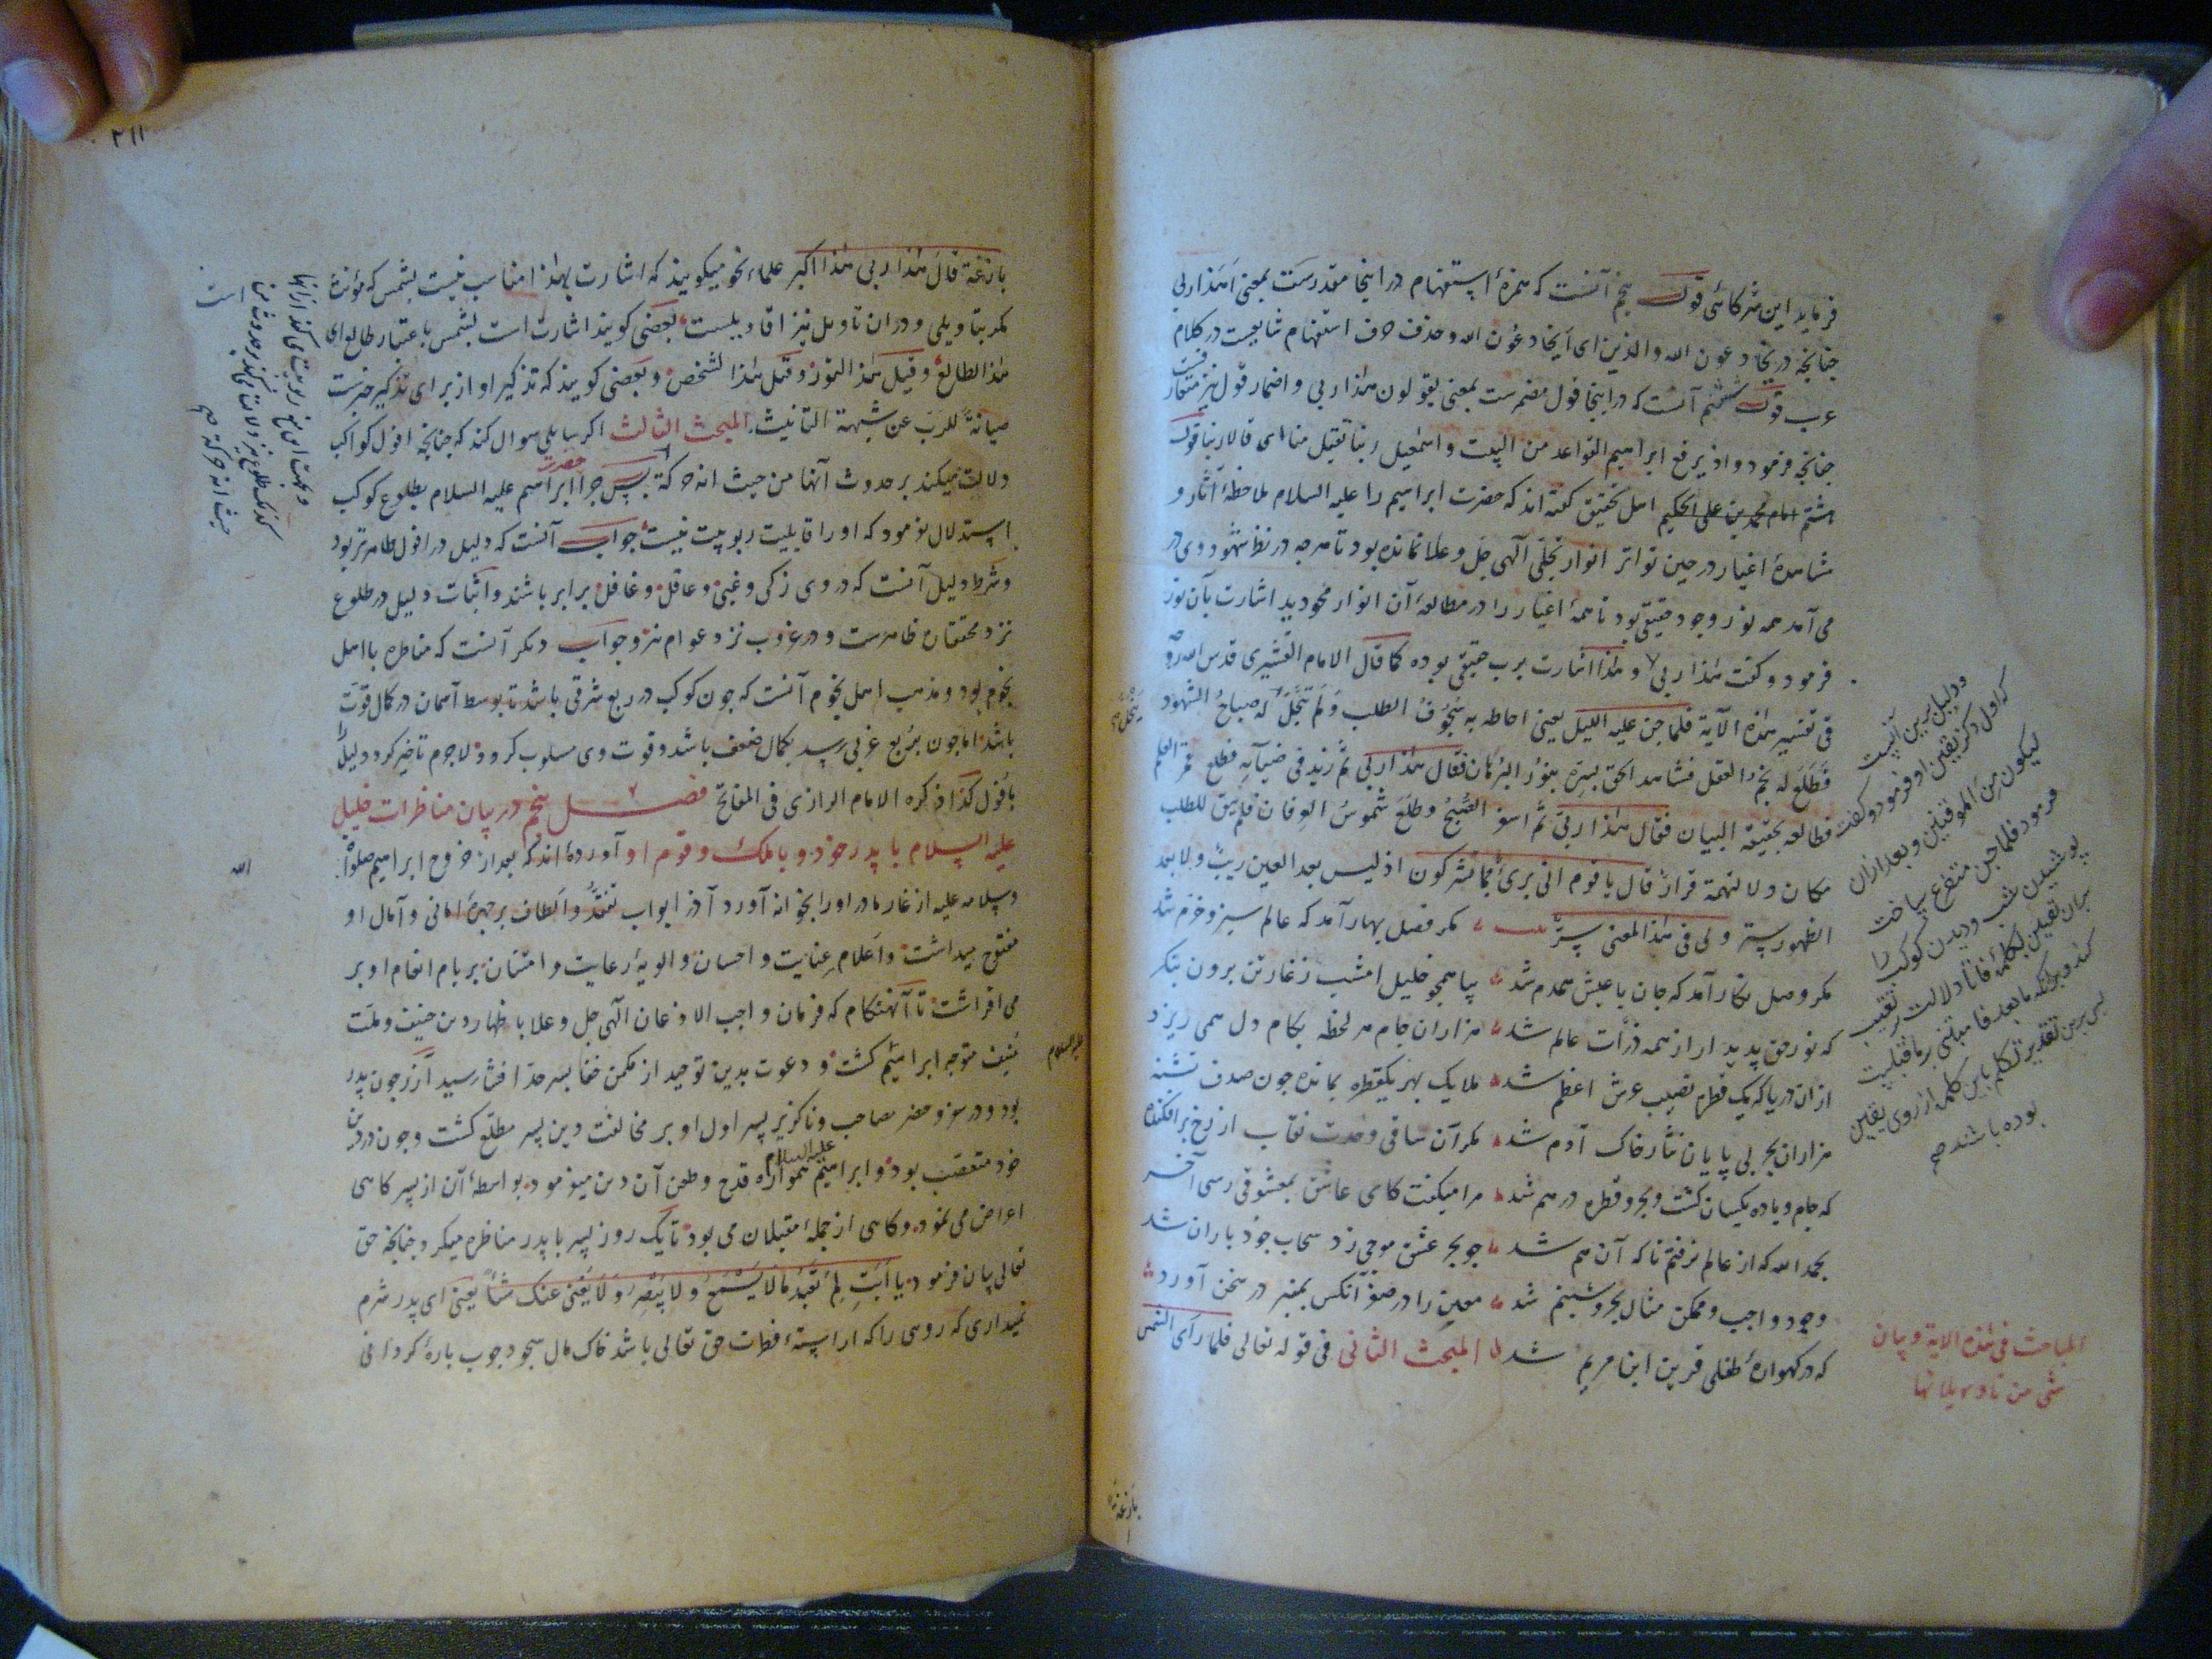 فرماید این شرکائی قول پنجم آنست که همزهٔ استفهام در اینجا مقدرست بمعنی اهذا ربی
چنانچه در یخادعون الله والذین ای ایخادعون الله و حذف حرف استفهام شایعست در کلام
عرب قول ششم آنست که در اینجا قول مضمرست بمعنی یقولون هذا ربی و اضمار قول نیز متعارفست
چنانچه فرمود واذ یرفع ابراهیم القواعد من البیت واسمعیل ربنا تقبل منا ای قالا ربنا قول
هشتم امام محمد بن علی الحکیم اهل تحقیق گفته اند که حضرت ابراهیم را علیه السلام ملاحظهٔ آثار و
مشاهدهٔ اغیار در حین تواتر انوار تجلی الهی جل وعلا نمانده بود تا هرچه در نظر شهود وی در
می آمد همه نور وجود حقیقی بود تا همهٔ اغیار را در مطالعهٔ آن انوار محو دید اشارت بآن نور
فرمود و گفت هذا ربی و هذا اشارت برب حقیقی بوده کما قال الامام القشیری قدس الله روحه
فی تفسیر هذه الآیة فلما جن علیه اللیل یعنی احاطه به سجوف الطلب ولم تتجل له صباح الشهود
فطلع له نجم العقل فشاهد الحق بسره بنور البرهان فقال هذا ربی ثم زید فی ضیآئه فطلع قمر العلم
فطالعه بحقیقة البیان فقال هذا ربی ثم اسفر الصبح وطلع شموس العرفان فلم یبق للطلب
مکان ولا لتهمة قرار قال یا قوم انی بریء مما تشرکون اذ لیس بعد العین ریب ولا بعد
الظهور ستر ولی فی هذا المعنی مگر فصل بهار آمد که عالم سبز و خرم شد
مگر وصل نگار آمد که جان با عیش همدم شد بیا همچو خلیل امشب ز غار تن برون بنگر
که نور حق پدید ار از همه ذرات عالم شد هزاران جام هر لحظه بکام دل همی ریزد
ازان دریا که یک قطره نصیب عرش اعظم شد ملایک بهر یکقطره بمانده چون صدف تشنه
هزاران بحر بی پایان نثار خاک آدم شد مگر آن ساقی وحدت نقاب از رخ برافکنده
که جام و باده یکسان گشت و بحر و قطره درهم شد مرا میگفت کای عاشق بمعشوقی رسی آخر
بحمدالله که از عالم نرفتم تا که آن هم شد چو بحر عشق موجی زد سحاب جود باران شد
وجود واجب و ممکن مثال بحر و شبنم شد معین را در صف آنکس بمنبر در سخن آورد
که در گهوارهٔ طفلی قرین ابن مریم شد المبحث الثانی فی قوله تعالی فلما رای الشمس
ودلیل برین آنست
که اول ذکر یقین او فرمود و گفت
لیکون من الموقنین و بعد ازان
فرمود فلما جن متفرع ساخت
پوشیدن شب و دیدن کوکب را
بران یقین بکلمهٔ فا تا دلالت بر تعقیب
کند و برانکه ما بعد فا مبتنی بر ما قبلست
پس برین تقدیر تکلم باین کلمه از روی یقین
بوده باشد صح
المباحث فی هذه الایة وبیان
شی من تاویلاتها
بازغة
۲۱۱
بازغة قال هذا ربی هذا اکبر علماء نحو میگویند که اشارت بهذا مناسب نیست بشمس که مؤنث
مگر بتاویلی و دران تاویل نیز اقاویلست بعضی گویند اشارت است بشمس باعتبار طالع ای
هذا الطالع وقیل هذا النور وقیل هذا الشخص و بعضی گویند که تذکیر او از برای تذکیر خبرست
صیانة للرب عن شبهة التانیث المبحث الثالث اگر سایلی سوال کند که چنانچه افول کواکب
دلالت میکند بر حدوث آنها من حیث انه حرکة پس چرا حضرت ابراهیم علیه السلام بطلوع کوکب
استدلال نفرمود که او را قابلیت ربوبیت نیست جواب آنست که دلیل در افول ظاهرتر بود
و شرط دلیل آنست که در وی زکی و غبی و عاقل و غافل برابر باشند و اثبات دلیل در طلوع
نزد محققان ظاهرست و در غروب نزد عوام نیز و جواب دیگر آنست که مناظره با اهل
نجوم بود و مذهب اهل نجوم آنست که چون کوکب در ربع شرقی باشد تا بوسط آسمان در کمال قوت
باشد اما چون بربع غربی رسد بکمال ضعف باشد و قوت وی مسلوب گردد لاجرم تاخیر کرد دلیل را
بافول کذا ذکره الامام الرازی فی المفاتح فصل پنجم در بیان مناظرات خلیل
علیه السلام با پدر خود و با ملک و قوم او آورده اند که بعد از خروج ابراهیم صلوات الله
وسلامه علیه از غار مادر او را بخانه آورد آذر ابواب تفقد و الطاف بر چهرهٔ امانی و آمال او
مفتوح میداشت و اعلام عنایت و احسان و الویهٔ رعایت و امتنان بر بام انعام او بر
می افراشت تا آنهنگام که فرمان واجب الاذعان الهی جل وعلا باظهار دین حنیف و ملت
منیف متوجه ابراهیم علیه السلام گشت و دعوت بدین توحید از مکمن خفا بسر حد افشا رسید آزر چون پدر
بود و در سفر و حضر مصاحب و ناگزیر پسر اول او بر مخالفت دین پسر مطلع گشت و چون در دین
خود متعصب بود و ابراهیم علیه السلام همواره قدح و طعن آن دین میفرمود بواسطهٔ آن از پسر گاهی
اعراض می نمود و گاهی از جملهٔ مقبلان می بود تا یک روز پسر با پدر مناظره میکرد چنانچه حق
تعالی بیان فرمود یا ابت لم تعبد ما لا یسمع ولا یبصر ولا یغنی عنک شیئا یعنی ای پدر شرم
نمیداری که روی را که اراستهٔ فطرت حق تعالی باشد خاک مال سجود چوب پارهٔ گردانی